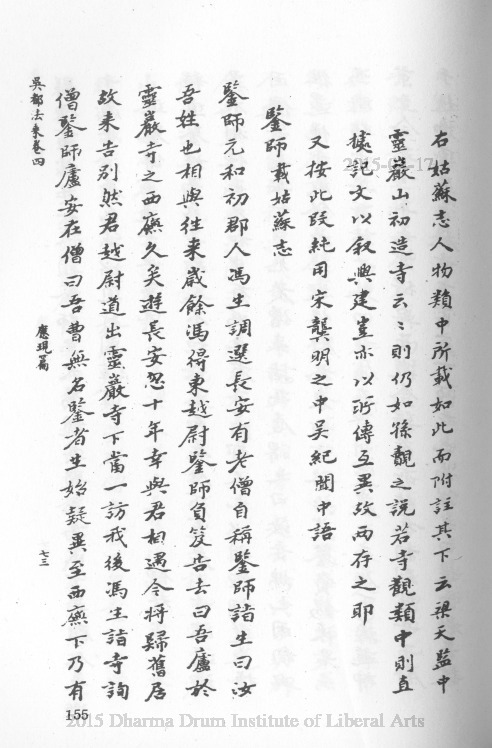 右姑蘇志人物類中所載如此而附註其下云梁天監中
靈巖山初造寺云〻則仍如孫覿之說若寺觀類中則直
據記文以叙興建豈亦以所傳互異故兩存之耶
又按此段純用宋龔明之中吳紀聞中語
鑒師 載姑蘇志
鑒師元和初郡人馮生調選長安有老僧自稱鑒師詣生曰汝
吾姓也相與往来歲餘馮得東越尉鑒師負笈告去曰吾廬於
靈巖寺之西廡久矣遊長安忽十年幸與君相遇今將歸舊居
故来告別然君越尉道出靈巖寺下當一訪我後馮生詣寺詢
僧鑒師廬安在僧曰吾曹無名鑒者生始疑異至西廡下乃有
吳都法乘卷四
應現篇
七三
155
2015-04-17
2015 Dharma Drum Institute of Liberal Arts